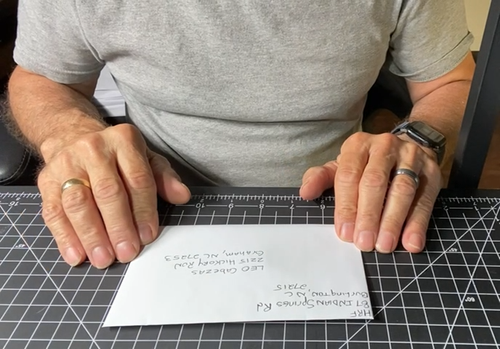 HRF
INDIAN SPRINGS Rd
Burlington, NC
27215
LEO CABEZAS
2215 Hickory Rd
Graham, NC 27253